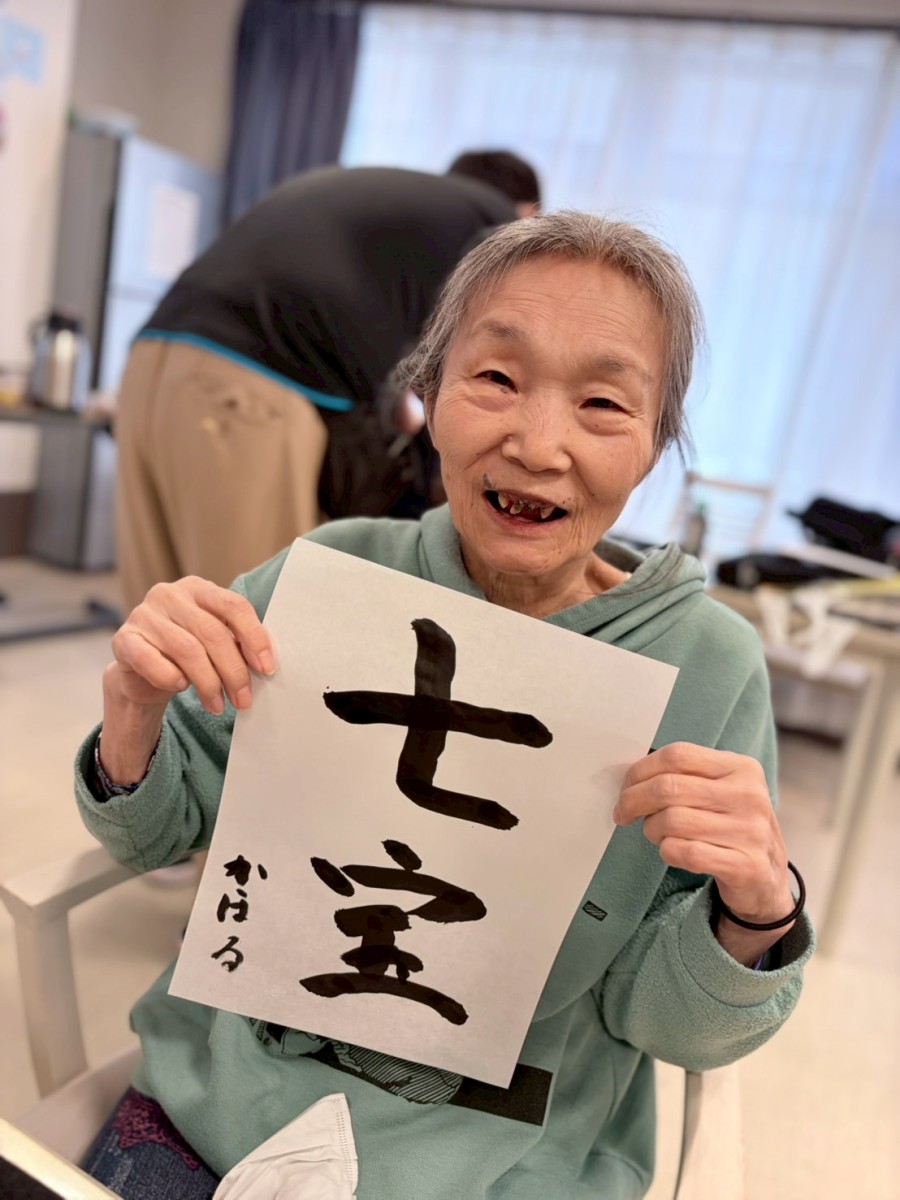 七宝
かほる